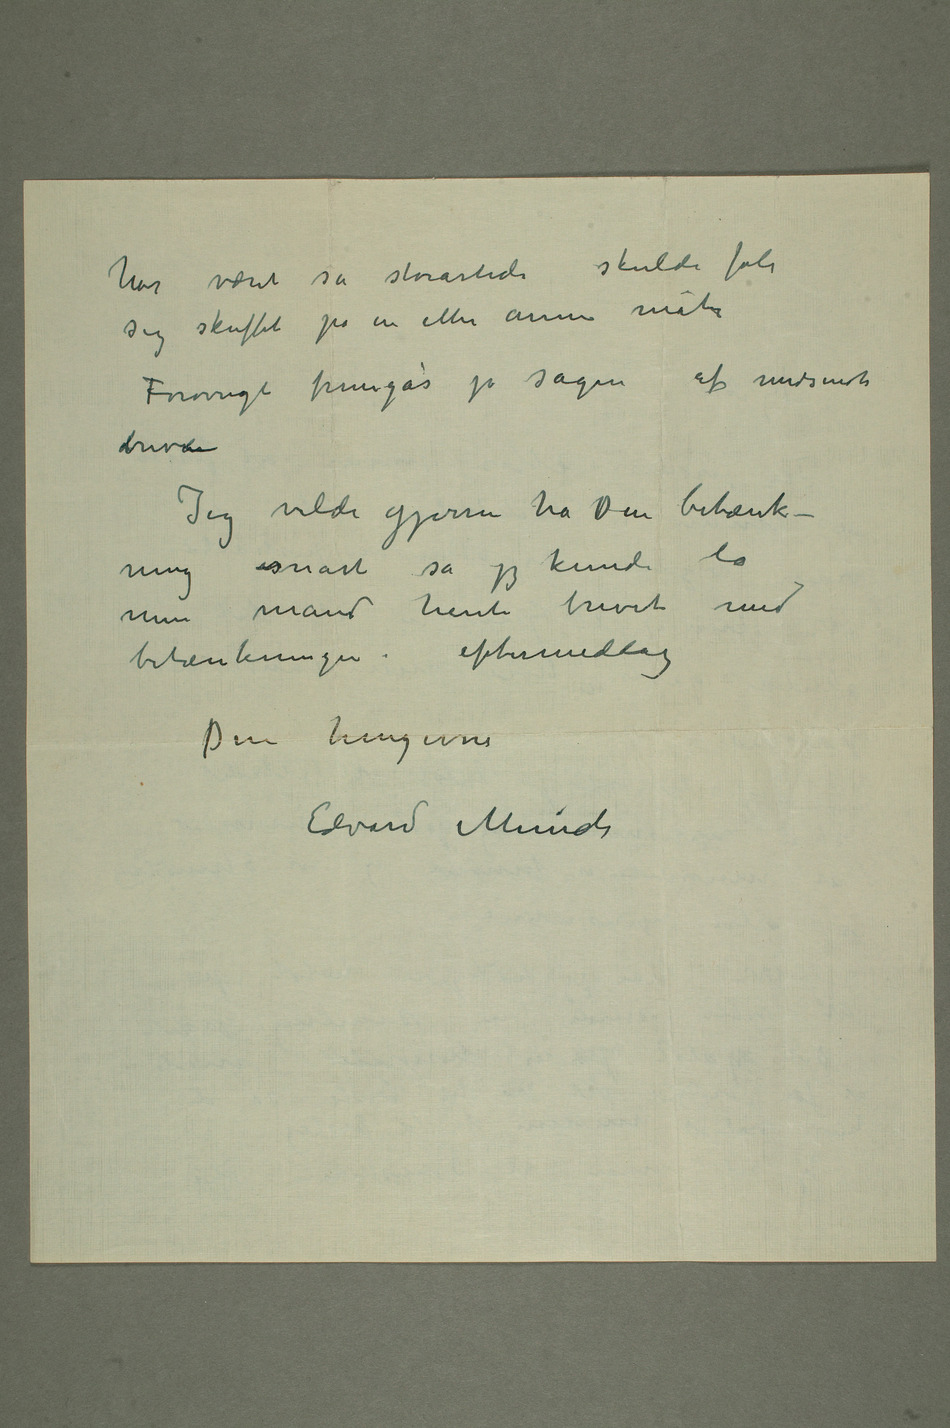 har været så storartede skulde føle
sig skuffet på en eller annen måte
Forøvrigt fremgås jo sagen af medsendte
brevene
Jeg vilde gjerne ha Den betænk-
ning snart så jeg kunde la
min mand hente brevet med
betænkningen. eftermiddag
Den hengivne
Edvard Munch